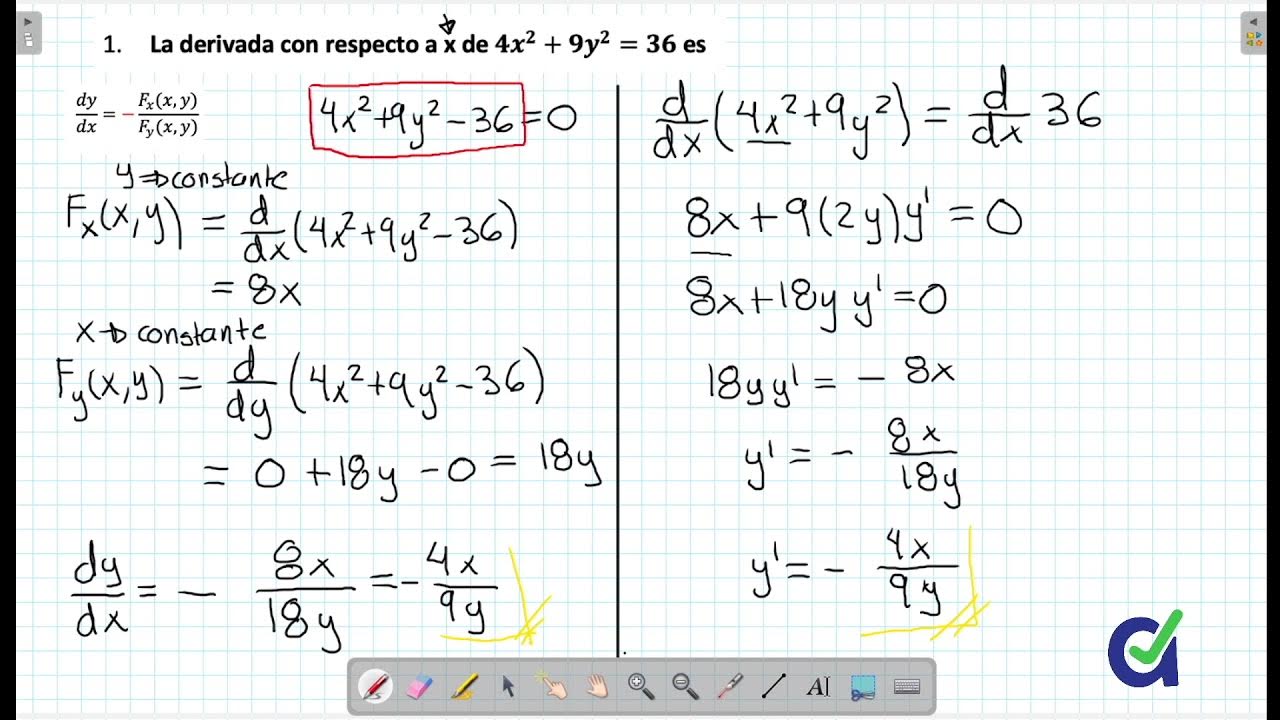 1. La derivada con respecto a x de 4x² + 9y² = 36 es
dy/dx = −F_x(x, y)/F_y(x, y)
4x²+9y²−36=0
y⇒constante
F_x(x,y) = d/dx(4x²+9y²−36)
= 8x
x→constante
F_y(x,y) = d/dy(4x²+9y²−36)
= 0+18y−0 = 18y
dy/dx = − 8x/18y = −4x/9y
d/dx(4x²+9y²) = d/dx 36
8x+9(2y)y' = 0
8x+18y y' = 0
18yy' = −8x
y' = − 8x/18y
y' = − 4x/9y
AI